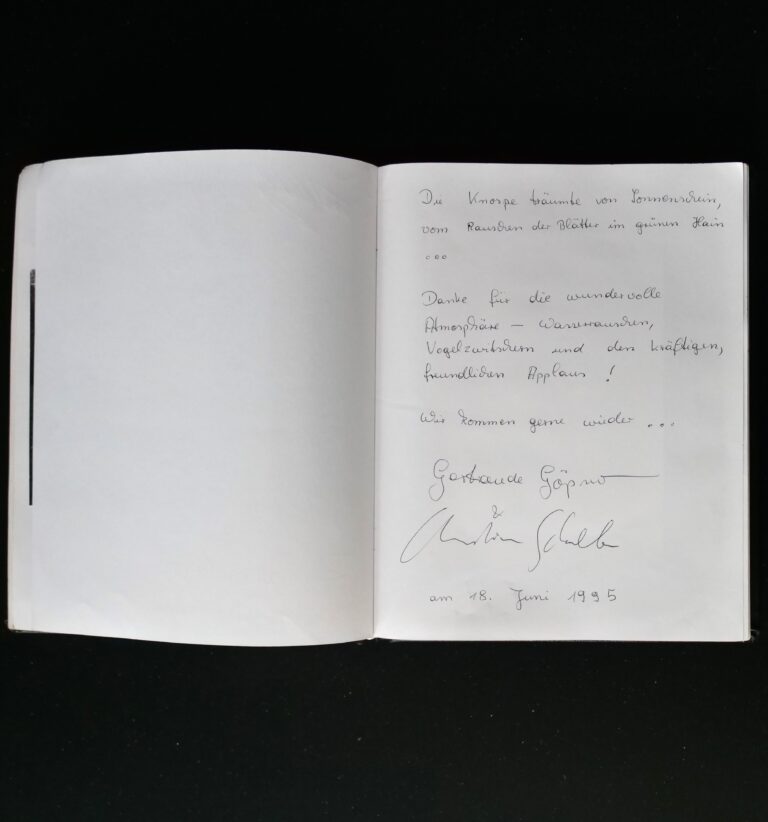 Die Knospe träumte von Sonnenschein,
vom Rauschen der Blätter im grünen Hain
...
Danke für die wundervolle
Atmosphäre – Wasserrauschen,
Vogelzwitschern und den kräftigen,
freundlichen Applaus!
Wir kommen gerne wieder ...
&
am 18. Juni 1995